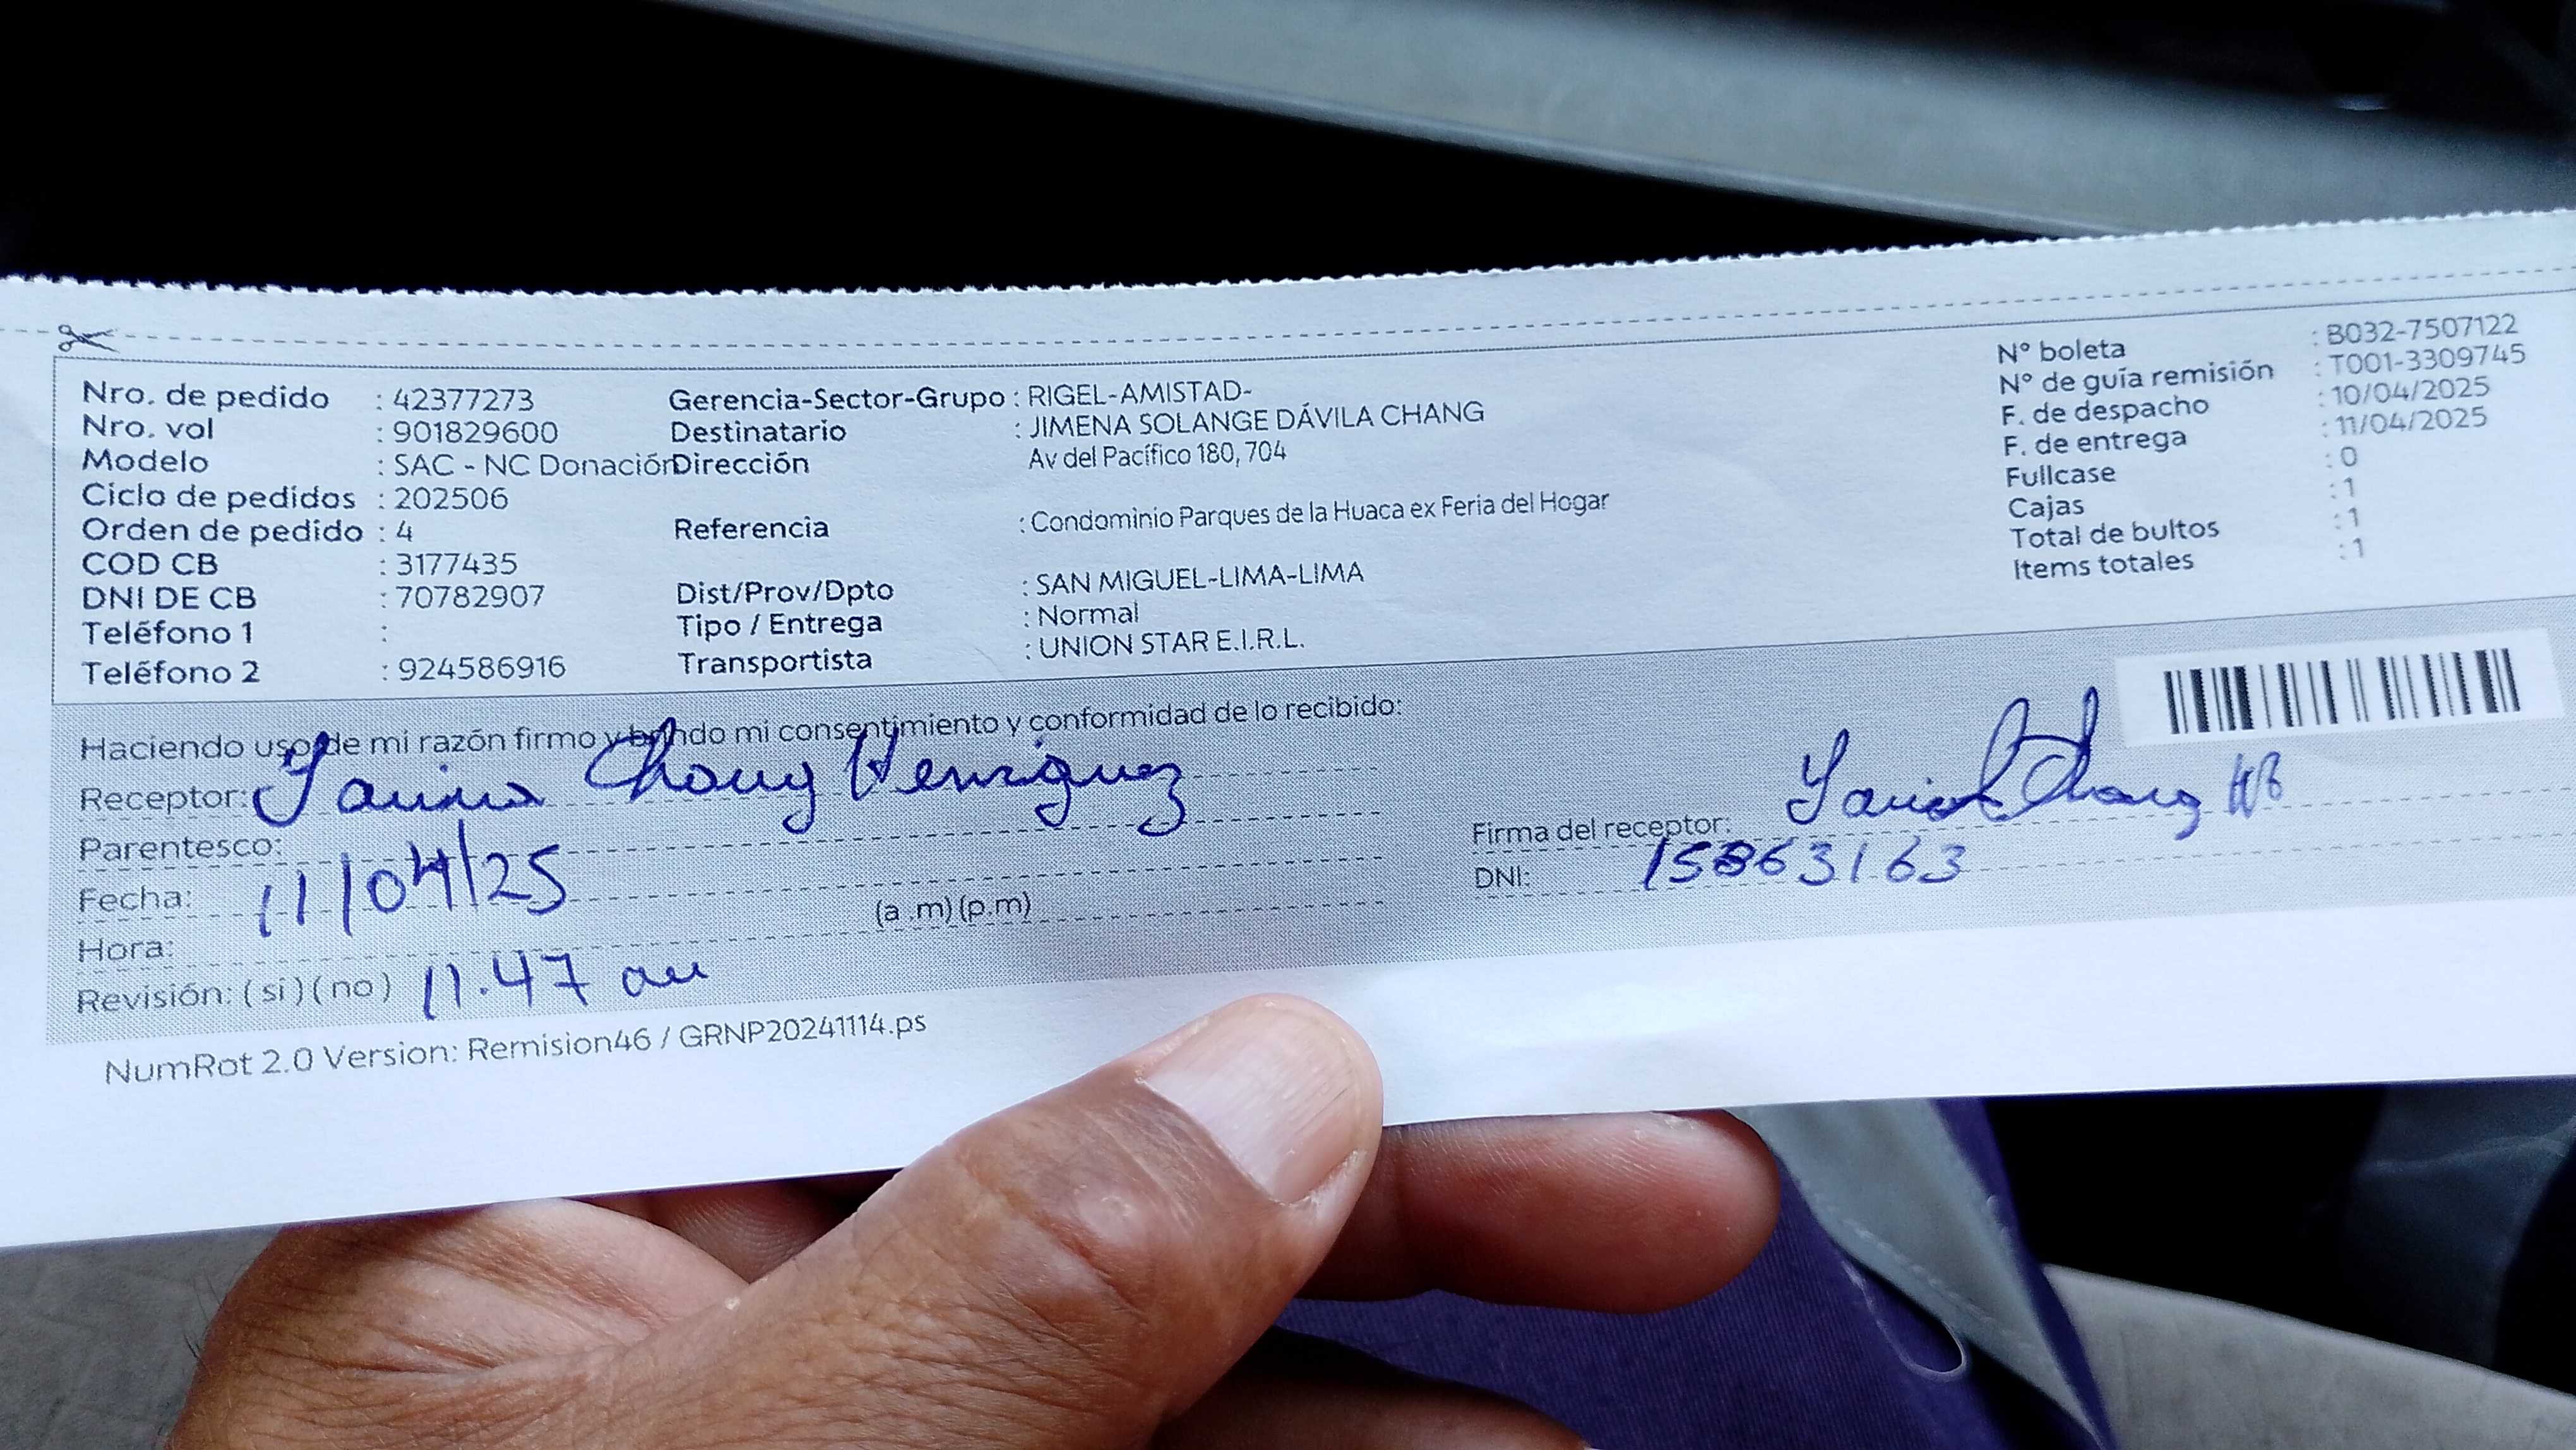 Nro. de pedido : 42377273
Nro. vol : 901829600
Modelo : SAC - NC Donación
Ciclo de pedidos : 202506
Orden de pedido : 4
COD CB : 3177435
DNI DE CB : 70782907
Teléfono 1 :
Teléfono 2 : 924586916
Gerencia-Sector-Grupo : RIGEL-AMISTAD-
Destinatario : JIMENA SOLANGE DÁVILA CHANG
Dirección Av del Pacífico 180, 704
Referencia : Condominio Parques de la Huaca ex Feria del Hogar
Dist/Prov/Dpto : SAN MIGUEL-LIMA-LIMA
Tipo / Entrega : Normal
Transportista : UNION STAR E.I.R.L.
N° boleta : B032-7507122
N° de guía remisión : T001-3309745
F. de despacho : 10/04/2025
F. de entrega : 11/04/2025
Fullcase : 0
Cajas : 1
Total de bultos : 1
Items totales : 1
Haciendo uso de mi razón firmo y brindo mi consentimiento y conformidad de lo recibido:
Receptor: Chang Henriquez
Parentesco:
Fecha: 11/04/25
Hora: (a .m) (p.m)
Revisión: ( si ) ( no ) 11.47 am
Firma del receptor: Chang
DNI: 15863163
NumRot 2.0 Version: Remision46 / GRNP20241114.ps